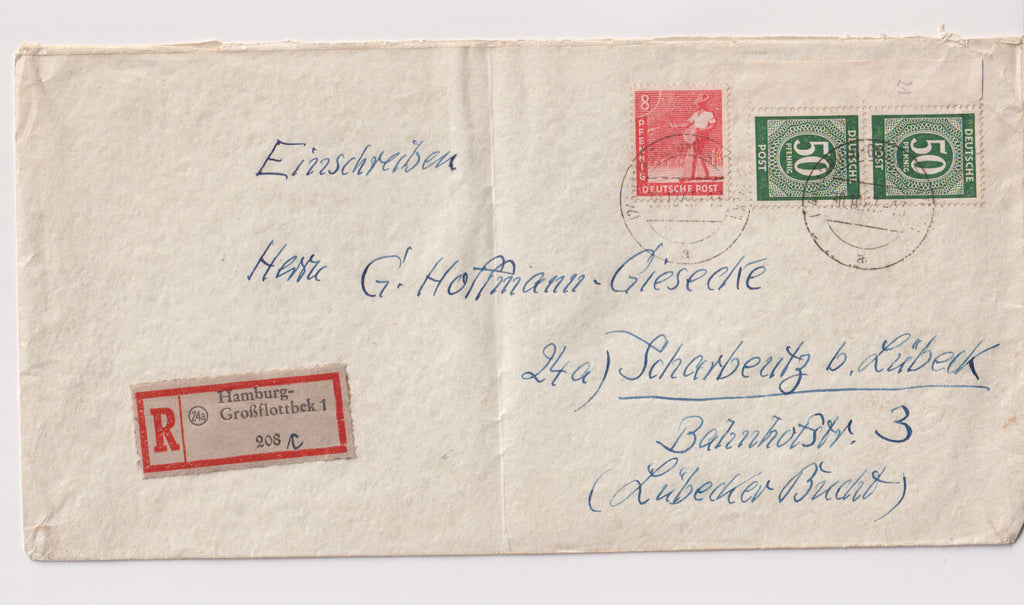 21
8
PFENNIG
DEUTSCHE POST
50
PFENNIG
DEUTSCHE
POST
50
PFENNIG
DEUTSCHE
POST
a
a
Einschreiben
Herrn G. Hoffmann-Giesecke
24a) Scharbeutz b. Lübeck
Bahnhofstr. 3
(Lübecker Bucht)
R
24a
Hamburg-
Großflottbek 1
208 c